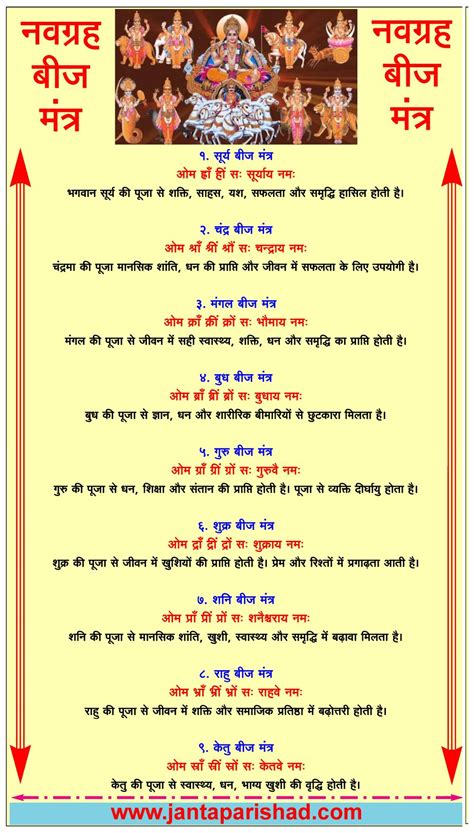 नवग्रह बीज मंत्र
नवग्रह बीज मंत्र
१. सूर्य बीज मंत्र
ओम ह्राँ ह्रीं सः सूर्याय नमः
भगवान सूर्य की पूजा से शक्ति, साहस, यश, सफलता और समृद्धि हासिल होती है।
२. चंद्र बीज मंत्र
ओम श्राँ श्रीं श्रौं सः चन्द्राय नमः
चंद्रमा की पूजा मानसिक शांति, धन की प्राप्ति और जीवन में सफलता के लिए उपयोगी है।
३. मंगल बीज मंत्र
ओम क्राँ क्रीं क्रों सः भौमाय नमः
मंगल की पूजा से जीवन में सही स्वास्थ्य, शक्ति, धन और समृद्धि का प्राप्ति होती है।
४. बुध बीज मंत्र
ओम ब्राँ ब्रीं ब्रों सः बुधाय नमः
बुध की पूजा से ज्ञान, धन और शारीरिक बीमारियों से छुटकारा मिलता है।
५. गुरु बीज मंत्र
ओम ग्राँ ग्रीं ग्रों सः गुरुवै नमः
गुरु की पूजा से धन, शिक्षा और संतान की प्राप्ति होती है। पूजा से व्यक्ति दीर्घायु होता है।
६. शुक्र बीज मंत्र
ओम द्राँ द्रीं द्रों सः शुक्राय नमः
शुक्र की पूजा से जीवन में खुशियों की प्राप्ति होती है। प्रेम और रिश्तों में प्रगाढ़ता आती है।
७. शनि बीज मंत्र
ओम प्राँ प्रीं प्रों सः शनैश्चराय नमः
शनि की पूजा से मानसिक शांति, खुशी, स्वास्थ्य और समृद्धि में बढ़ावा मिलता है।
८. राहु बीज मंत्र
ओम भ्राँ भ्रीं भ्रों सः राहवे नमः
राहु की पूजा से जीवन में शक्ति और समाजिक प्रतिष्ठा में बढ़ोत्तरी होती है।
९. केतु बीज मंत्र
ओम स्राँ स्रीं स्रों सः केतवे नमः
केतु की पूजा से स्वास्थ्य, धन, भाग्य खुशी की वृद्धि होती है।
www.jantaparishad.com